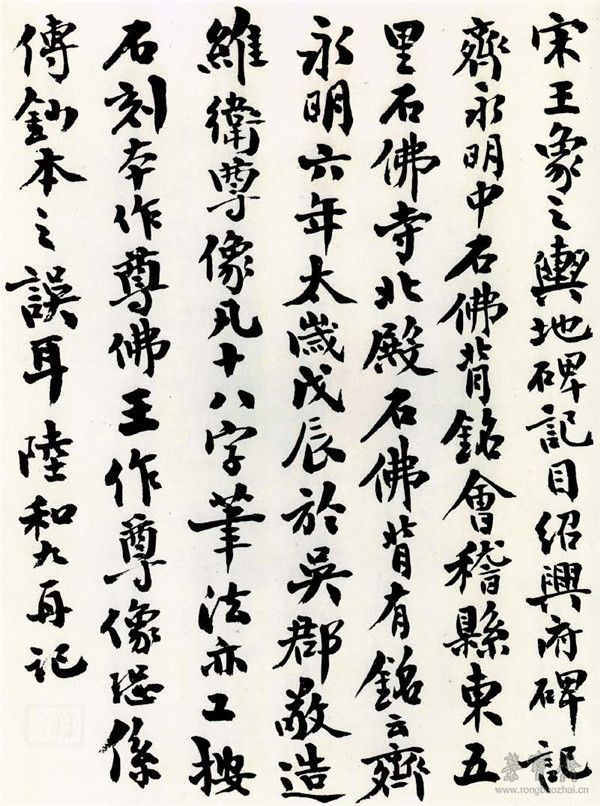 宋王象之輿地碑記目紹興府碑記
齊永明中石佛背銘會稽縣東五
里石佛寺北殿石佛背有銘云齊
永明六年太歲戊辰於吳郡敬造
維衛尊像凡十八字筆法亦工按
石刻本作尊佛王作尊像恐係
傳鈔本之誤耳 陸和九再記
榮寶齋
www.rongbaozhai.cn